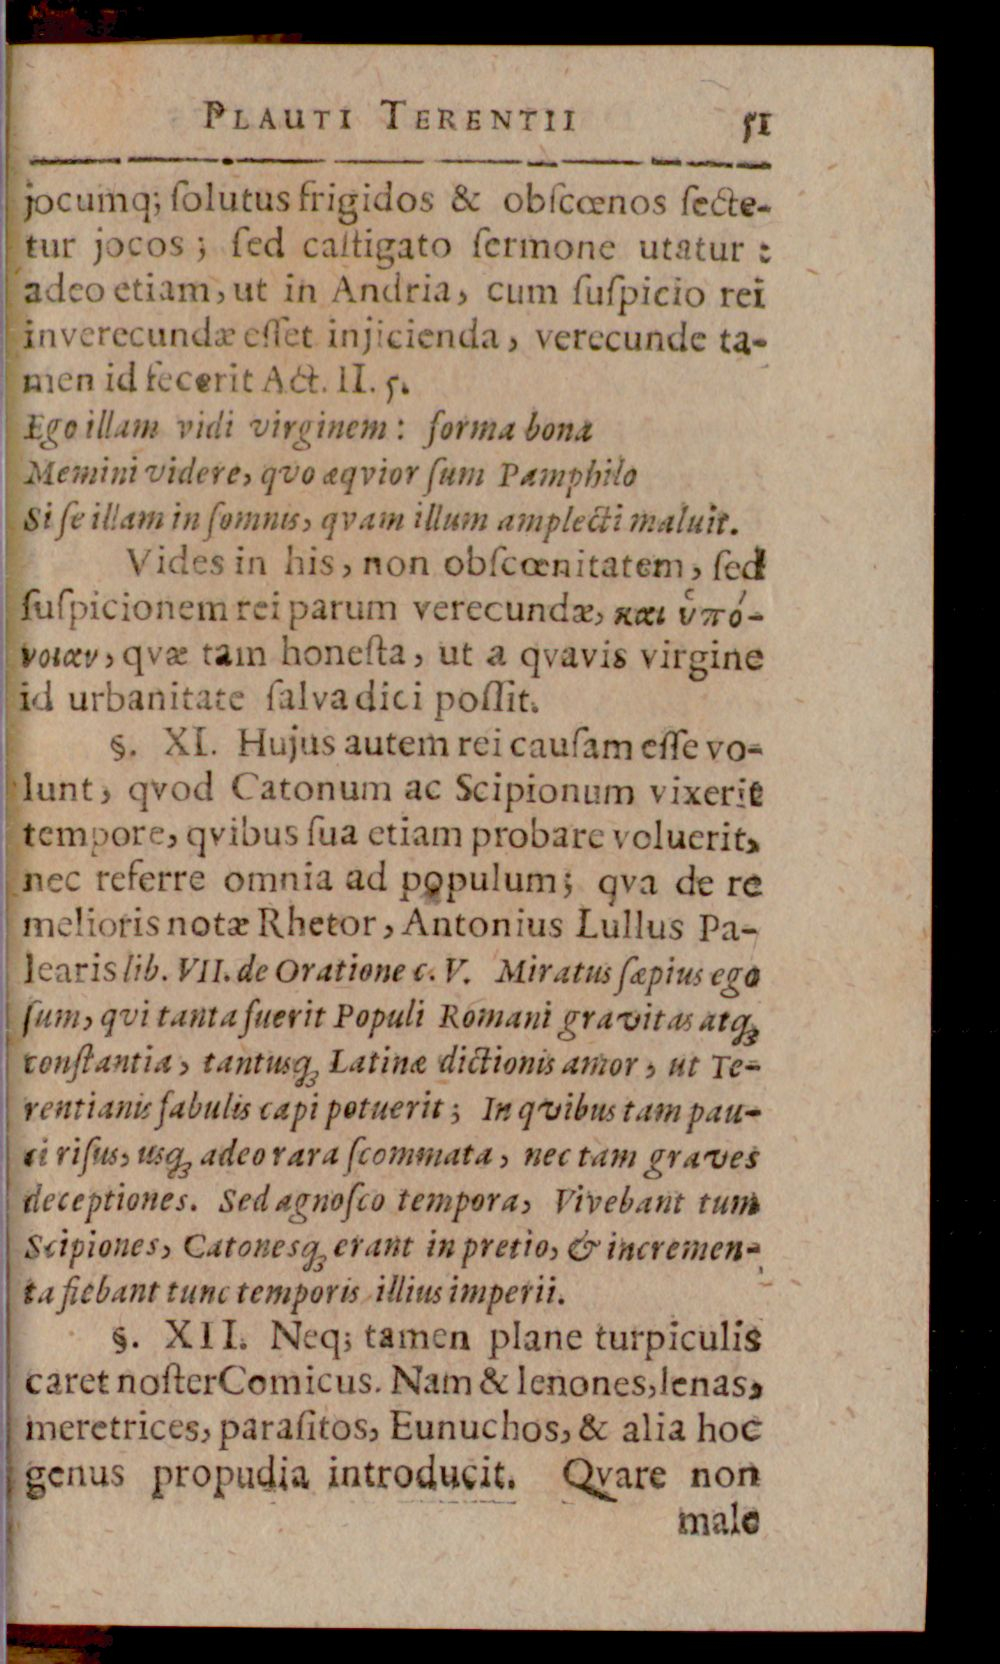 PLAUTI TERENTII 51
jocumq; ſolutus frigidos & obſcœnos ſecte-
tur jocos; ſed caſtigato ſermone utatur:
adeo etiam, ut in Andria, cum ſuſpicio rei
inverecundæ eſſet injicienda, verecunde ta-
men id fecerit Act. II. 5.
Ego illam vidi virginem: forma bona
Memini videre, qvo æqvior ſum Pamphilo
Si ſe illam in ſomnis, qvam illum amplecti maluit.
Vides in his, non obſcœnitatem, ſed
ſuſpicionem rei parum verecundæ, και ὑπό-
νοιαν, qvæ tam honeſta, ut a qvavis virgine
id urbanitate ſalva dici poſſit.
§. XI. Hujus autem rei cauſam eſſe vo-
lunt, qvod Catonum ac Scipionum vixerit
tempore, qvibus ſua etiam probare voluerit,
nec referre omnia ad populum; qva de re
melioris notæ Rhetor, Antonius Lullus Pa-
learis lib. VII. de Oratione c. V. Miratus ſæpius ego
ſum, qvi tanta fuerit Populi Romani gravitas atq;
conſtantia, tantusq; Latinæ dictionis amor, ut Te-
rentianis fabulis capi potuerit; In qvibus tam pau-
ci riſus, usq; adeo rara ſcommata, nec tam graves
deceptiones. Sed agnoſco tempora, Vivebant tum
Scipiones, Catonesq; erant in pretio, & incremen-
ta fiebant tunc temporis illius imperii.
§. XII. Neq; tamen plane turpiculis
caret noſter Comicus. Nam & lenones, lenas,
meretrices, paraſitos, Eunuchos, & alia hoc
genus propudia introducit. Qvare non
male